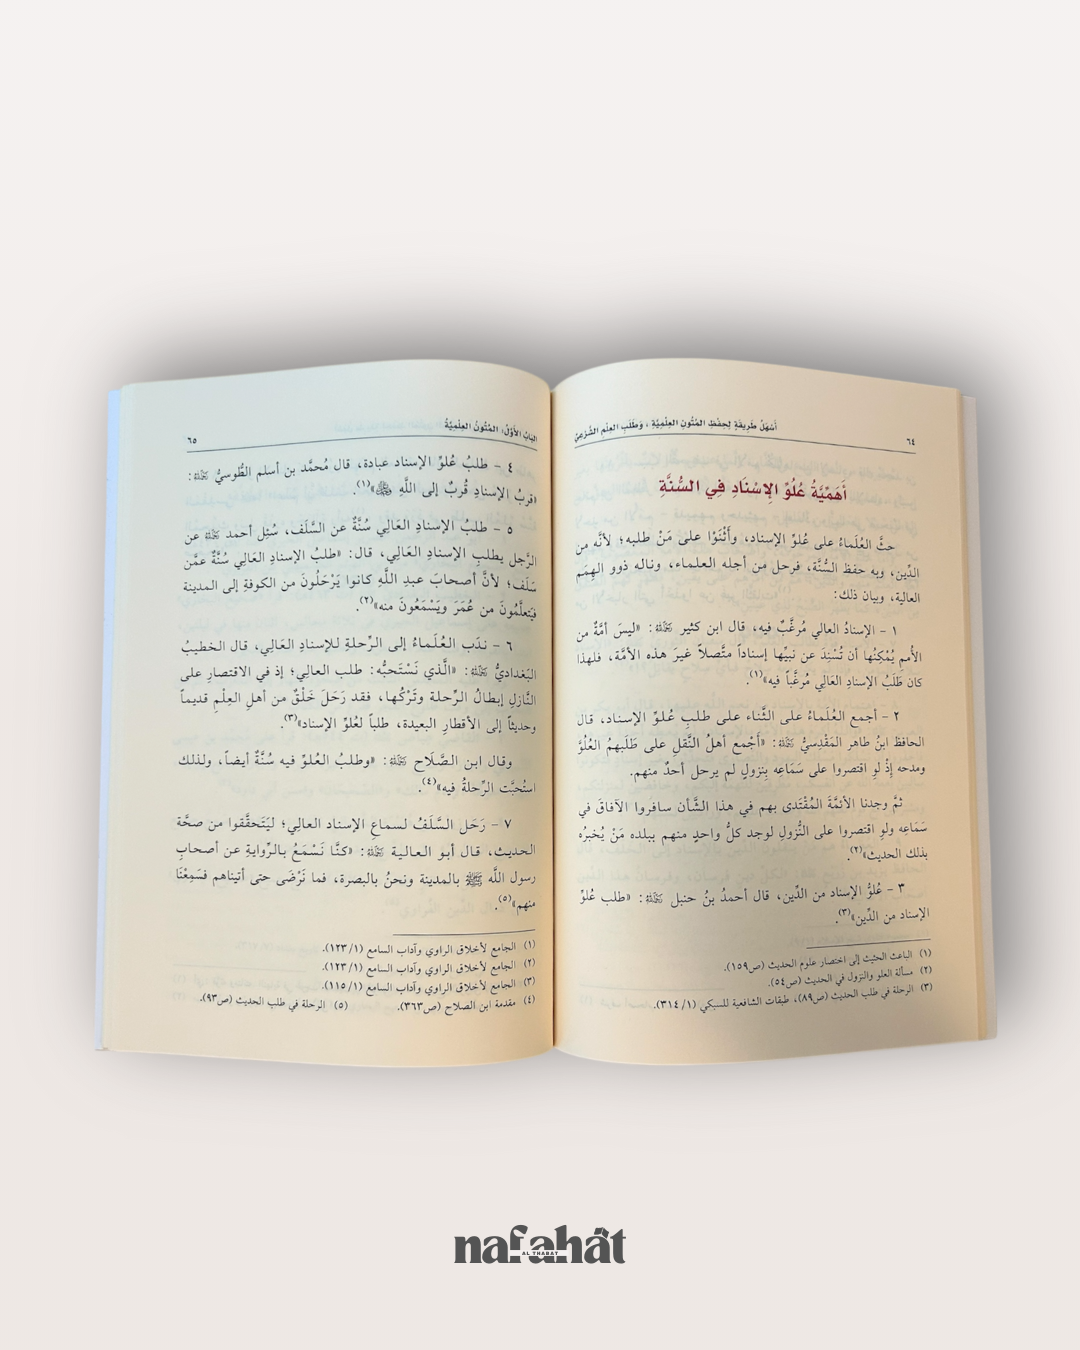 ٦٤
أَسْهَلُ طَرِيقَةٍ لِحِفْظِ المُتُونِ العِلْمِيَّةِ ، وَطَلَبِ العِلْمِ الشَّرْعِيِّ
أَهَمِّيَّةُ عُلُوِّ الإِسْنَادِ فِي السُّنَّةِ
حثَّ العُلَماءُ على عُلوِّ الإسناد، وأَثْنَوْا على مَنْ طلبه؛ لأنَّه من
الدِّين، وبه حفظ السُّنَّة، فرحل من أجله العلماء، وناله ذوو الهِمَم
العالية، وبيان ذلك:
١ - الإسنادُ العالي مُرغَّبٌ فيه، قال ابن كثير رَحِمَهُ اللَّهُ: «ليسَ أمَّةٌ من
الأُممِ يُمْكِنُها أن تُسْنِدَ عن نبيِّها إسناداً متَّصلاً غيرَ هذه الأمَّة، فلهذا
كان طَلَبُ الإسنادِ العَالِي مُرغَّباً فيه»(١).
٢ - أجمع العُلَماءُ على الثَّناء على طلبِ عُلوِّ الإسناد، قال
الحافظ ابنُ طاهر المَقْدِسيُّ رَحِمَهُ اللَّهُ: «أَجْمع أهلُ النَّقلِ على طَلَبهمُ العُلُوَّ
ومدحه إِذْ لوِ اقتصروا على سَمَاعِه بِنزولٍ لم يرحل أحدٌ منهم.
ثمَّ وجدنا الأئمَّةَ المُقْتَدى بهم في هذا الشَّأن سافروا الآفاقَ في
سَمَاعِه ولوِ اقتصروا على النُّزولِ لوجد كلُّ واحدٍ منهم ببلده مَنْ يُخبرُه
بذلك الحديث»(٢).
٣ - عُلوُّ الإسناد من الدِّين، قال أحمدُ بنُ حنبل رَحِمَهُ اللَّهُ: «طلب عُلوِّ
الإسناد من الدِّين»(٣).
(١) الباعث الحثيث إلى اختصار علوم الحديث (ص١٥٩).
(٢) مسألة العلو والنزول في الحديث (ص٥٤).
(٣) الرحلة في طلب الحديث (ص٨٩)، طبقات الشافعية للسبكي (١/ ٣١٤).
البَابُ الأَوَّلُ: المُتُونُ العِلْمِيَّةُ
٦٥
٤ - طلبُ عُلوِّ الإسناد عبادة، قال مُحمَّد بن أسلم الطُّوسيُّ رَحِمَهُ اللَّهُ:
«قربُ الإسنادِ قُربٌ إلى اللَّهِ عَزَّ وَجَلَّ»(١).
٥ - طلبُ الإسنادِ العَالِي سُنَّةٌ عن السَّلَف، سُئِل أحمد رَحِمَهُ اللَّهُ عن
الرَّجل يطلبِ الإسنادِ العَالِي، قال: «طلبُ الإسنادِ العَالِي سُنَّةٌ عمَّن
سَلَف؛ لأنَّ أصحابَ عبدِ اللَّهِ كانوا يَرْحَلُونَ من الكوفةِ إلى المدينة
فيَتعلَّمُونَ من عُمَرَ ويَسْمَعُونَ منه»(٢).
٦ - ندَب العُلَماءُ إلى الرِّحلةِ للإسنادِ العَالِي، قال الخطيبُ
البَغداديُّ رَحِمَهُ اللَّهُ: «الَّذي نَسْتَحبُّه: طلب العالي؛ إذ في الاقتصارِ على
النَّازلِ إبطالُ الرِّحلة وتَرْكُها، فقد رَحَلَ خَلْقٌ من أهلِ العِلْمِ قديماً
وحديثاً إلى الأقطارِ البعيدة، طلباً لعُلوِّ الإسناد»(٣).
وقال ابن الصَّلَاح رَحِمَهُ اللَّهُ: «وطلبُ العُلوِّ فيه سُنَّةٌ أيضاً، ولذلك
استُحبَّت الرِّحلةُ فيه»(٤).
٧ - رَحَل السَّلَفُ لسماعِ الإسناد العالِي؛ ليَتَحقَّقوا من صحَّة
الحديث، قال أبو العالية رَحِمَهُ اللَّهُ: «كنَّا نَسْمَعُ بالرِّوايةِ عن أصحابِ
رسول اللَّه ﷺ بالمدينة ونحنُ بالبصرة، فما نَرْضَى حتى أتيناهم فسَمِعْنَا
منهم»(٥).
(١) الجامع لأخلاق الراوي وآداب السامع (١/ ١٢٣).
(٢) الجامع لأخلاق الراوي وآداب السامع (١/ ١٢٣).
(٣) الجامع لأخلاق الراوي وآداب السامع (١/ ١١٥).
(٤) مقدمة ابن الصلاح (ص٣٦٣). (٥) الرحلة في طلب الحديث (ص٩٣).
nafahât
AL THABAT